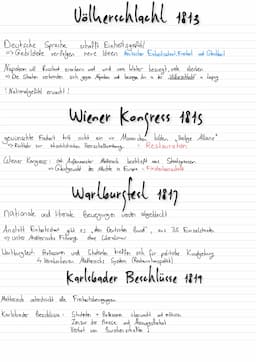 Völkerschlacht 1813
Deutsche Sprache schafft Einheitsgefühl
=> Gebildete verfolgen neue Ideen: Deutsche Einheit, Freiheit und Gleichheit
Napoleon will Russland erobern und wird vom Winter besiegt, viele sterben
=> Die Staaten verbünden sich gegen Napoleon und besiegen ihn in der Völkerschlacht in Leipzig
! Nationalgefühl erwacht!
Wiener Kongress 1815
gewünschte Einheit tritt nicht ein => Monarchen bilden "heilige Allianz"
=> Rückkehr zur absolutistischen Herrschaftsordnung : Restauration
Wiener Kongress: mit Außenminister Metternich beschließt neue Staatsgrenzen
=> Gleichgewicht der Mächte in Europa :
Wartburgfest 1817
Nationale und liberale Bewegungen werden abgeblockt
Anstatt Einheitsstaat gibt es "den Deutschen Bund", aus Einzelstaaten
=> unter Metternichs Führung ohne Oberhaupt
Wartburgfest: Professoren und Studenten treffen sich für politische Kundgebung
↳ Metternichs System
Karlsbader Beschlüsse 1819
Metternich unterdrückt die Freiheitsbewegungen
Karlsbader Beschlüsse: Studenten + Professoren überwacht und entlassen
Zensur der Presse und Meinungsfreiheit
Verbot von Burschenschaften!